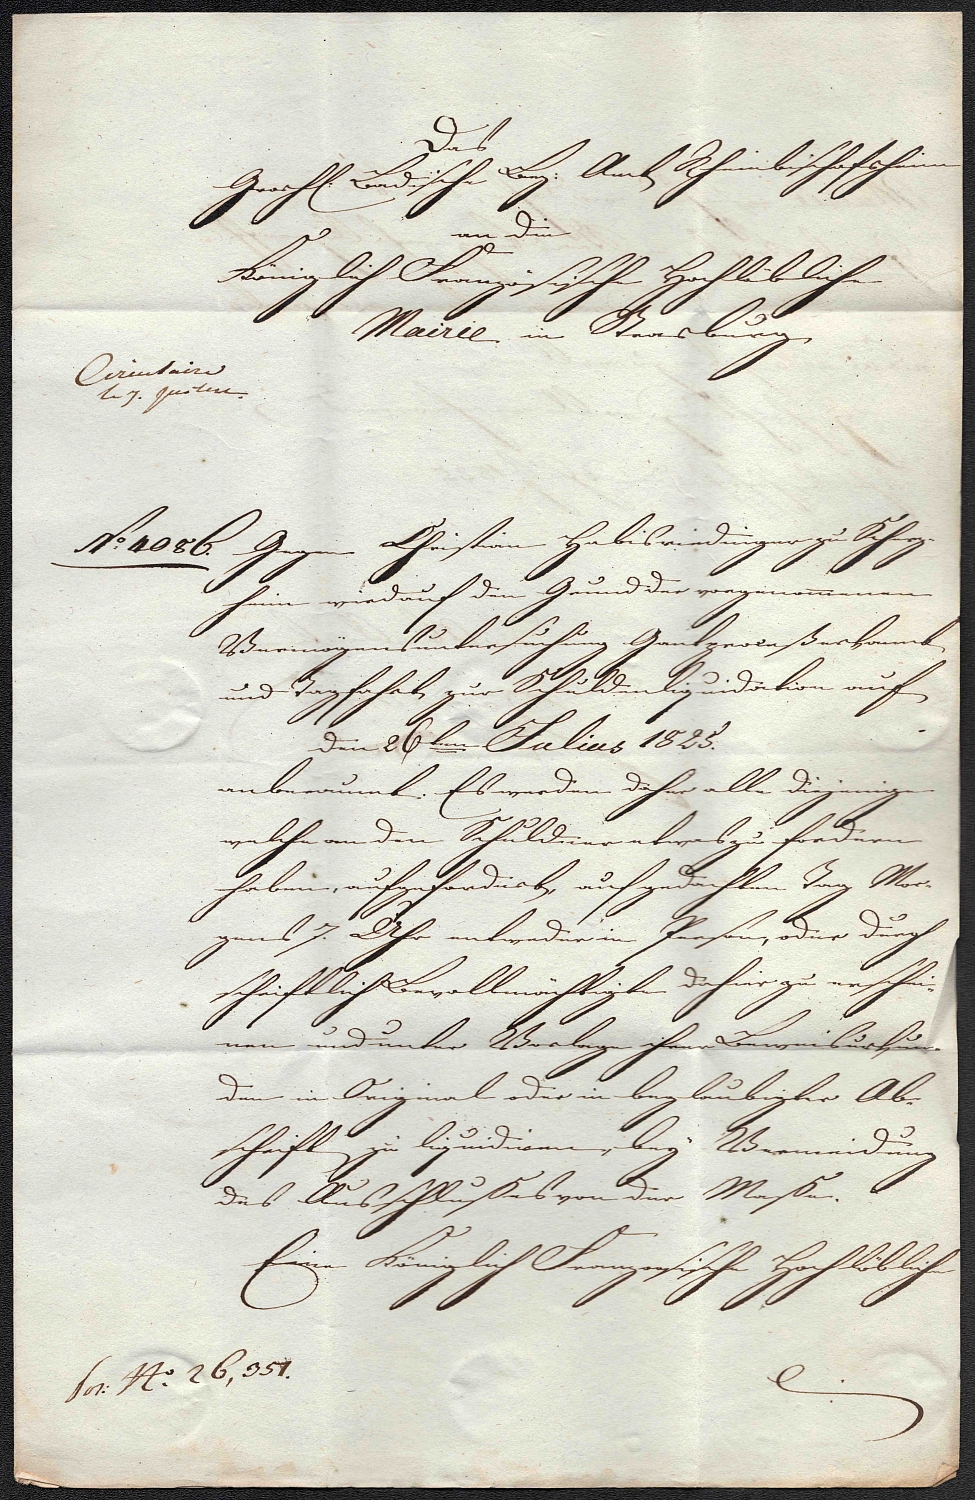 Das
Großh. Badische Bez. Amt Rheinbischofsheim
an die
Königlich Französische Hochlöbliche
Mairie in Strasburg
le 7.
No. 4086. Gegen Christian zu Scherz-
heim wird auf den Grund der vorgenommenen
Vermögensuntersuchung Gantproceß erkannt
und Tagfahrt zur Schuldenliquidation auf
den 26ten Julius 1825.
anberaumt. Es werden daher alle diejenige
welche an den Schuldner etwas zu fordern
haben, aufgefordert, auf gedachten Tag Mor-
gens 7. Uhr entweder in Person, oder durch
schriftlich Bevollmächtigte dahier zu erschei-
nen und unter Vorlage ihrer Beweisurkun-
den in Original oder in beglaubigter Ab-
schrift zu liquidiren, bey Vermeidung
des Ausschlußes von der Masse.
Eine Königlich Französische Hochlöbliche
No. 26,351.